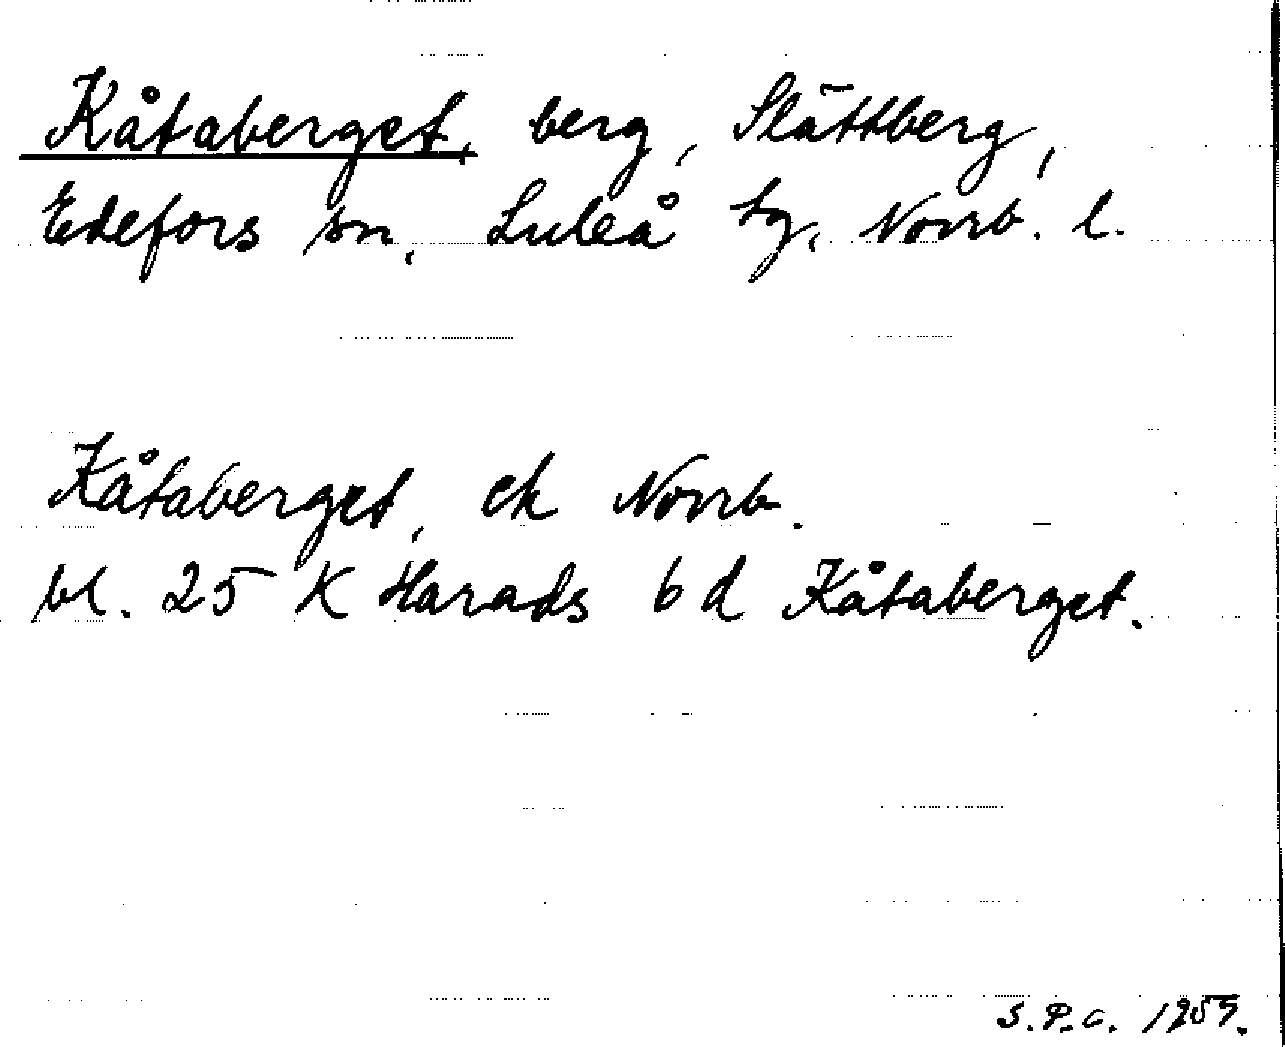 Kåtaberget, berg, Slättberg,
Edefors sn, Luleå tg, Norrb. l.
Kåtaberget, ek Norrb.
bl. 25 K Harads 6 d Kåtaberget.
S.P.C. 1959.